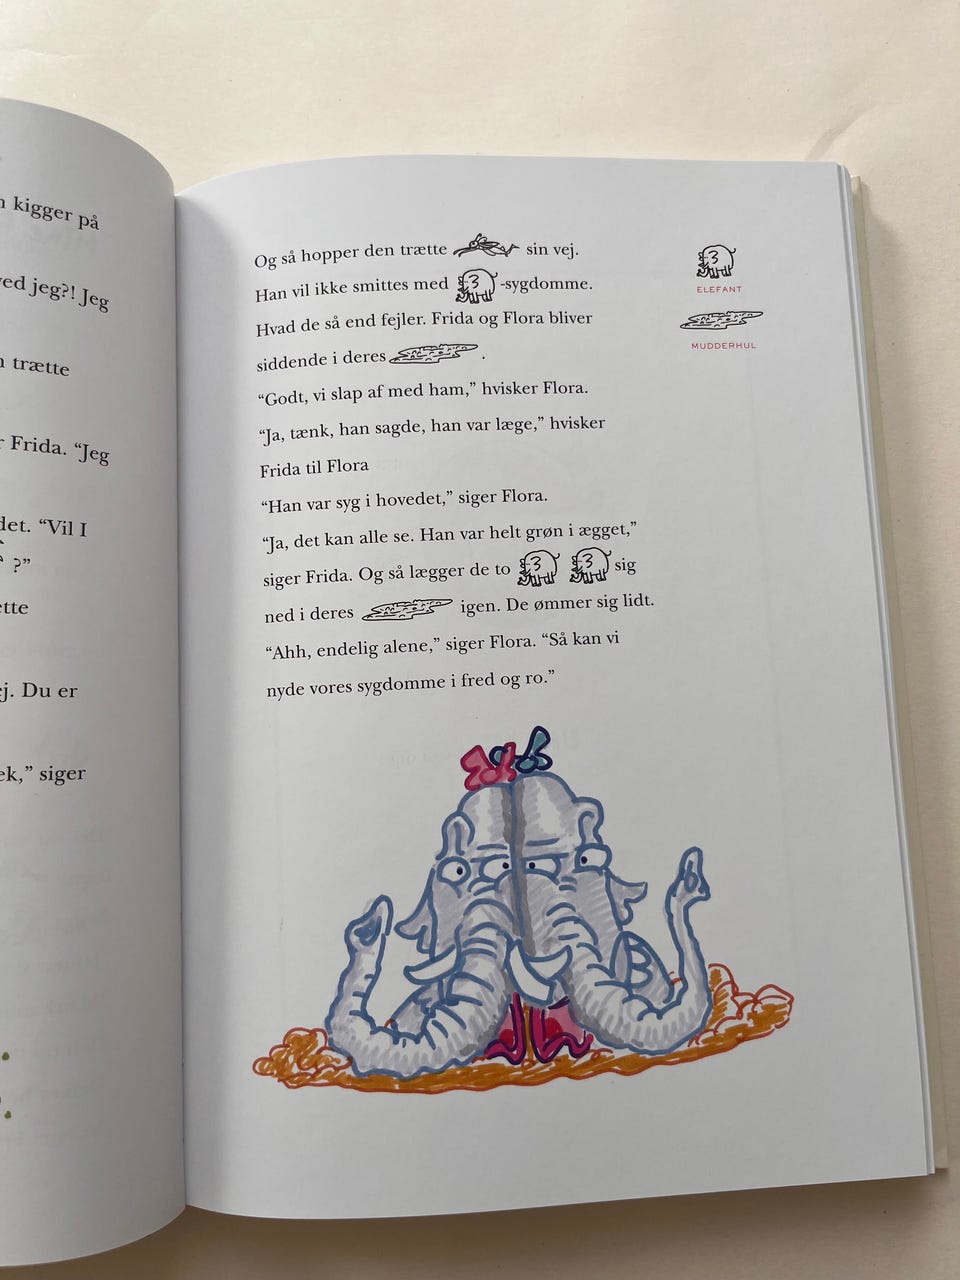 kigger på
ved jeg?! Jeg
trætte
Frida. “Jeg
“Vil I
?”
Du er
siger
Og så hopper den trætte sin vej.
Han vil ikke smittes med -sygdomme.
Hvad de så end fejler. Frida og Flora bliver
siddende i deres .
“Godt, vi slap af med ham,” hvisker Flora.
“Ja, tænk, han sagde, han var læge,” hvisker
Frida til Flora
“Han var syg i hovedet,” siger Flora.
“Ja, det kan alle se. Han var helt grøn i ægget,”
siger Frida. Og så lægger de to sig
ned i deres igen. De ømmer sig lidt.
“Ahh, endelig alene,” siger Flora. “Så kan vi
nyde vores sygdomme i fred og ro.”
ELEFANT
MUDDERHUL